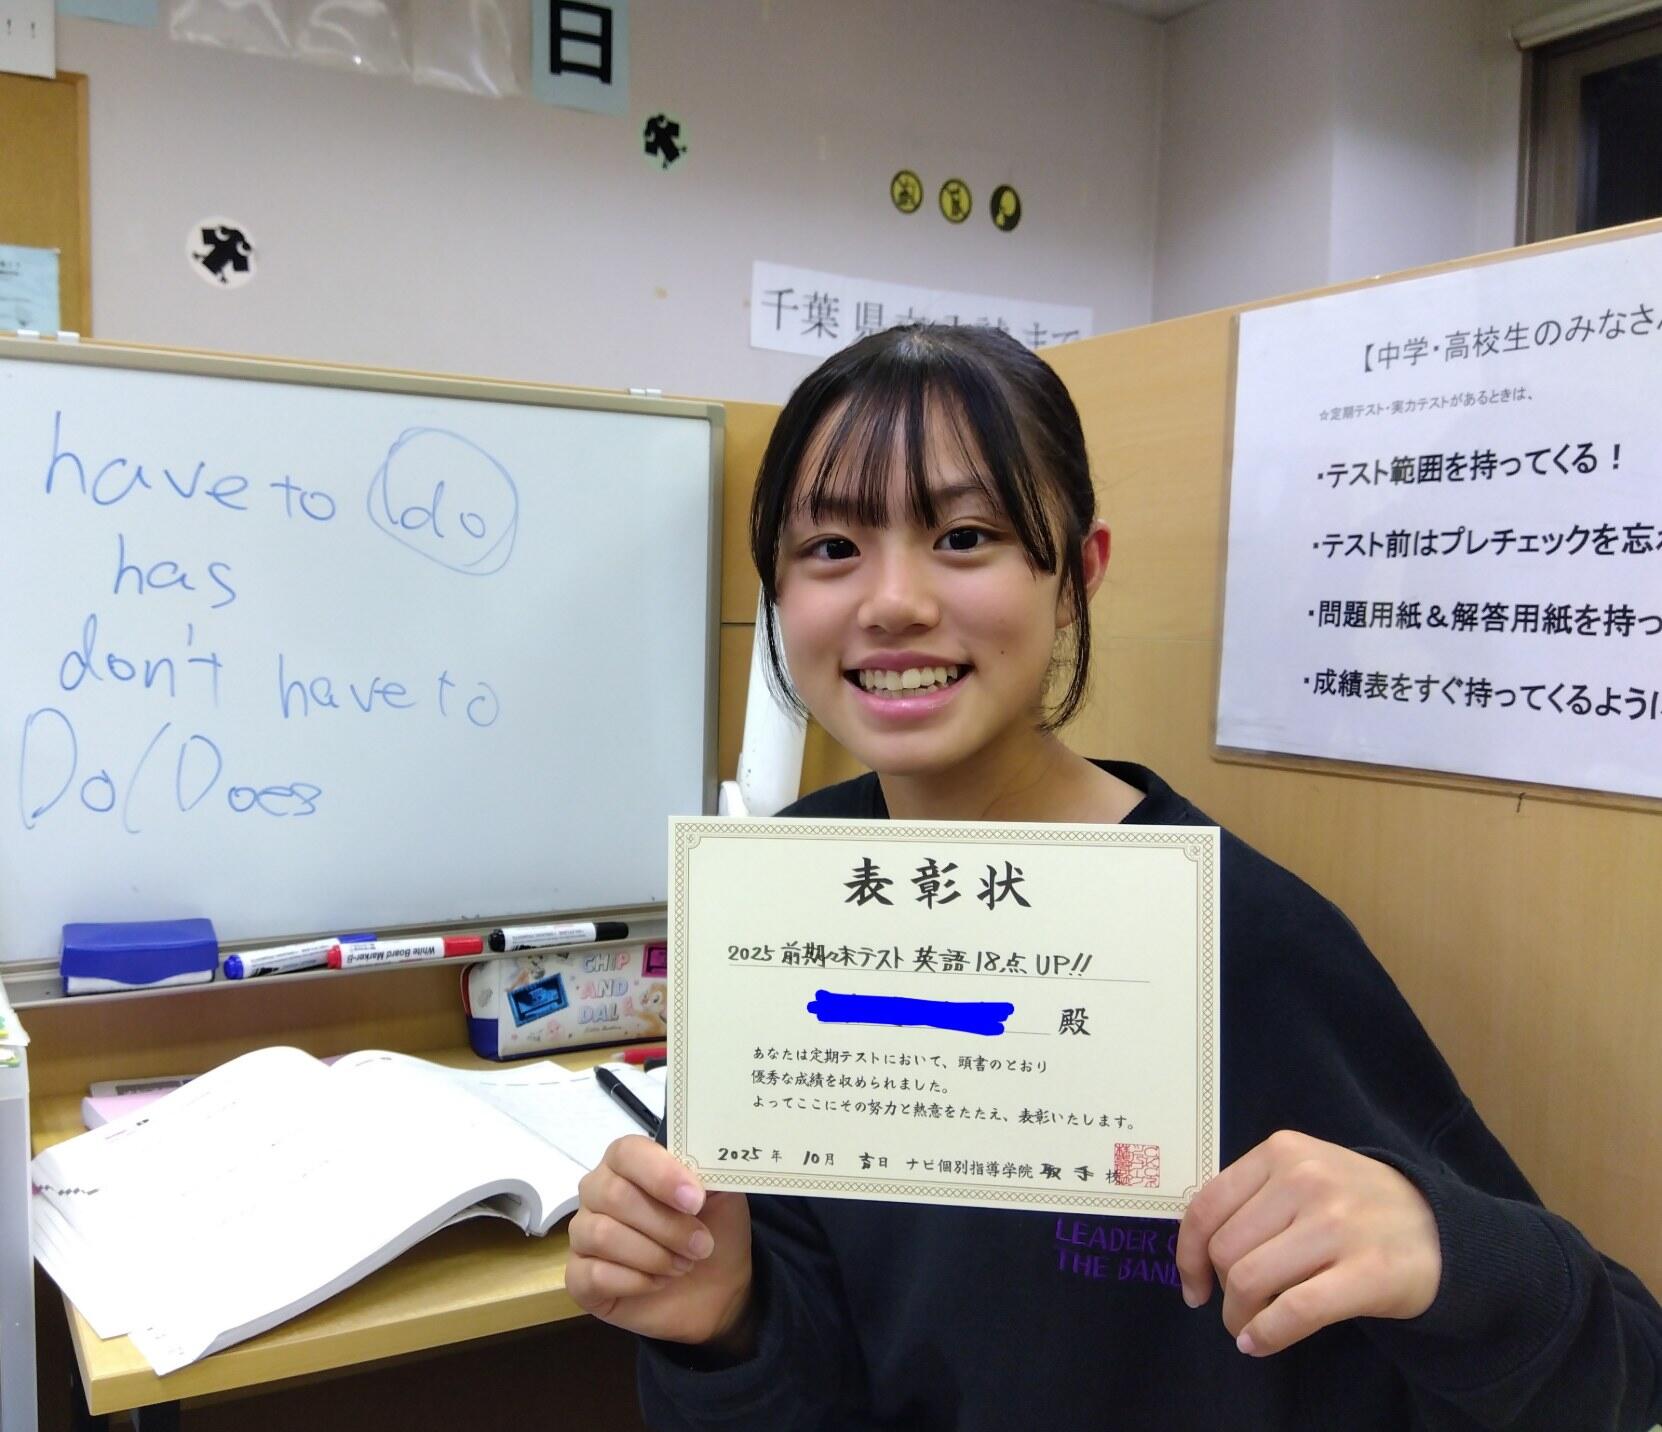 日
千葉県
have to do
has
don't have to
Do/Does
White Board Marker-B
CHIP
AND
DAL
【中学・高校生のみなさ
☆定期テスト・実力テストがあるときは、
・テスト範囲を持ってくる！
・テスト前はプレチェックを忘
・問題用紙＆解答用紙を持っ
・成績表をすぐ持ってくるように
表彰状
2025 前期々末テスト 英語18点UP!!
殿
あなたは定期テストにおいて、頭書のとおり
優秀な成績を収められました。
よってここにその努力と熱意をたたえ、表彰いたします。
2025年 10月 吉日 ナビ個別指導学院 取手 校
LEADER
THE BAND